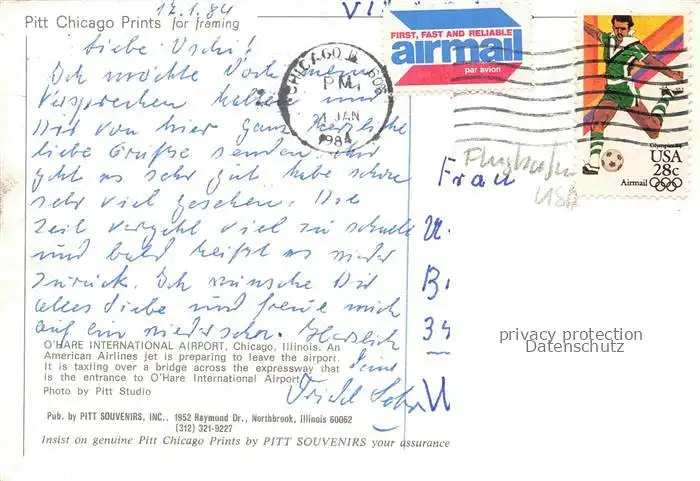 Pitt Chicago Prints for framing
17.1.84
Liebe Uschi!
Ich möchte Doch mein
Versprechen halten und
Dir von hier ganz herzliche
liebe Grüße senden. Mir
geht es sehr gut habe schon
sehr viel gesehen. Die
Zeit vergeht viel zu schnell
und bald heißt es wieder
zurück. Ich wünsche Dir
alles Liebe und freue mich
auf ein wiedersehen. Herzlich
Deine
O'HARE INTERNATIONAL AIRPORT, Chicago, Illinois. An
American Airlines jet is preparing to leave the airport.
It is taxiing over a bridge across the expressway that
is the entrance to O'Hare International Airport
Photo by Pitt Studio
Pub. by PITT SOUVENIRS, INC., 1952 Raymond Dr., Northbrook, Illinois 60062
(312) 321-9227
Insist on genuine Pitt Chicago Prints by PITT SOUVENIRS your assurance
CHICAGO, IL 606
PM
JAN
1984
FIRST, FAST AND RELIABLE
airmail
par avion
Olympics 84
USA
28c
Airmail
Flughafen
USA
Frau
privacy protection
Datenschutz